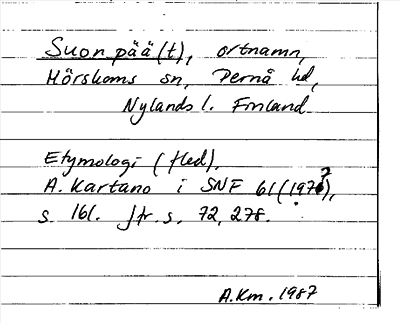 Suonpää(t), ortnamn,
Hörskoms sn, Pernå hd,
Nylands l. Finland
Etymologi (fled),
A. Kartano i SNF 61 (1977),
s. 161. Jfr. s. 72, 278.
A.Km. 1987